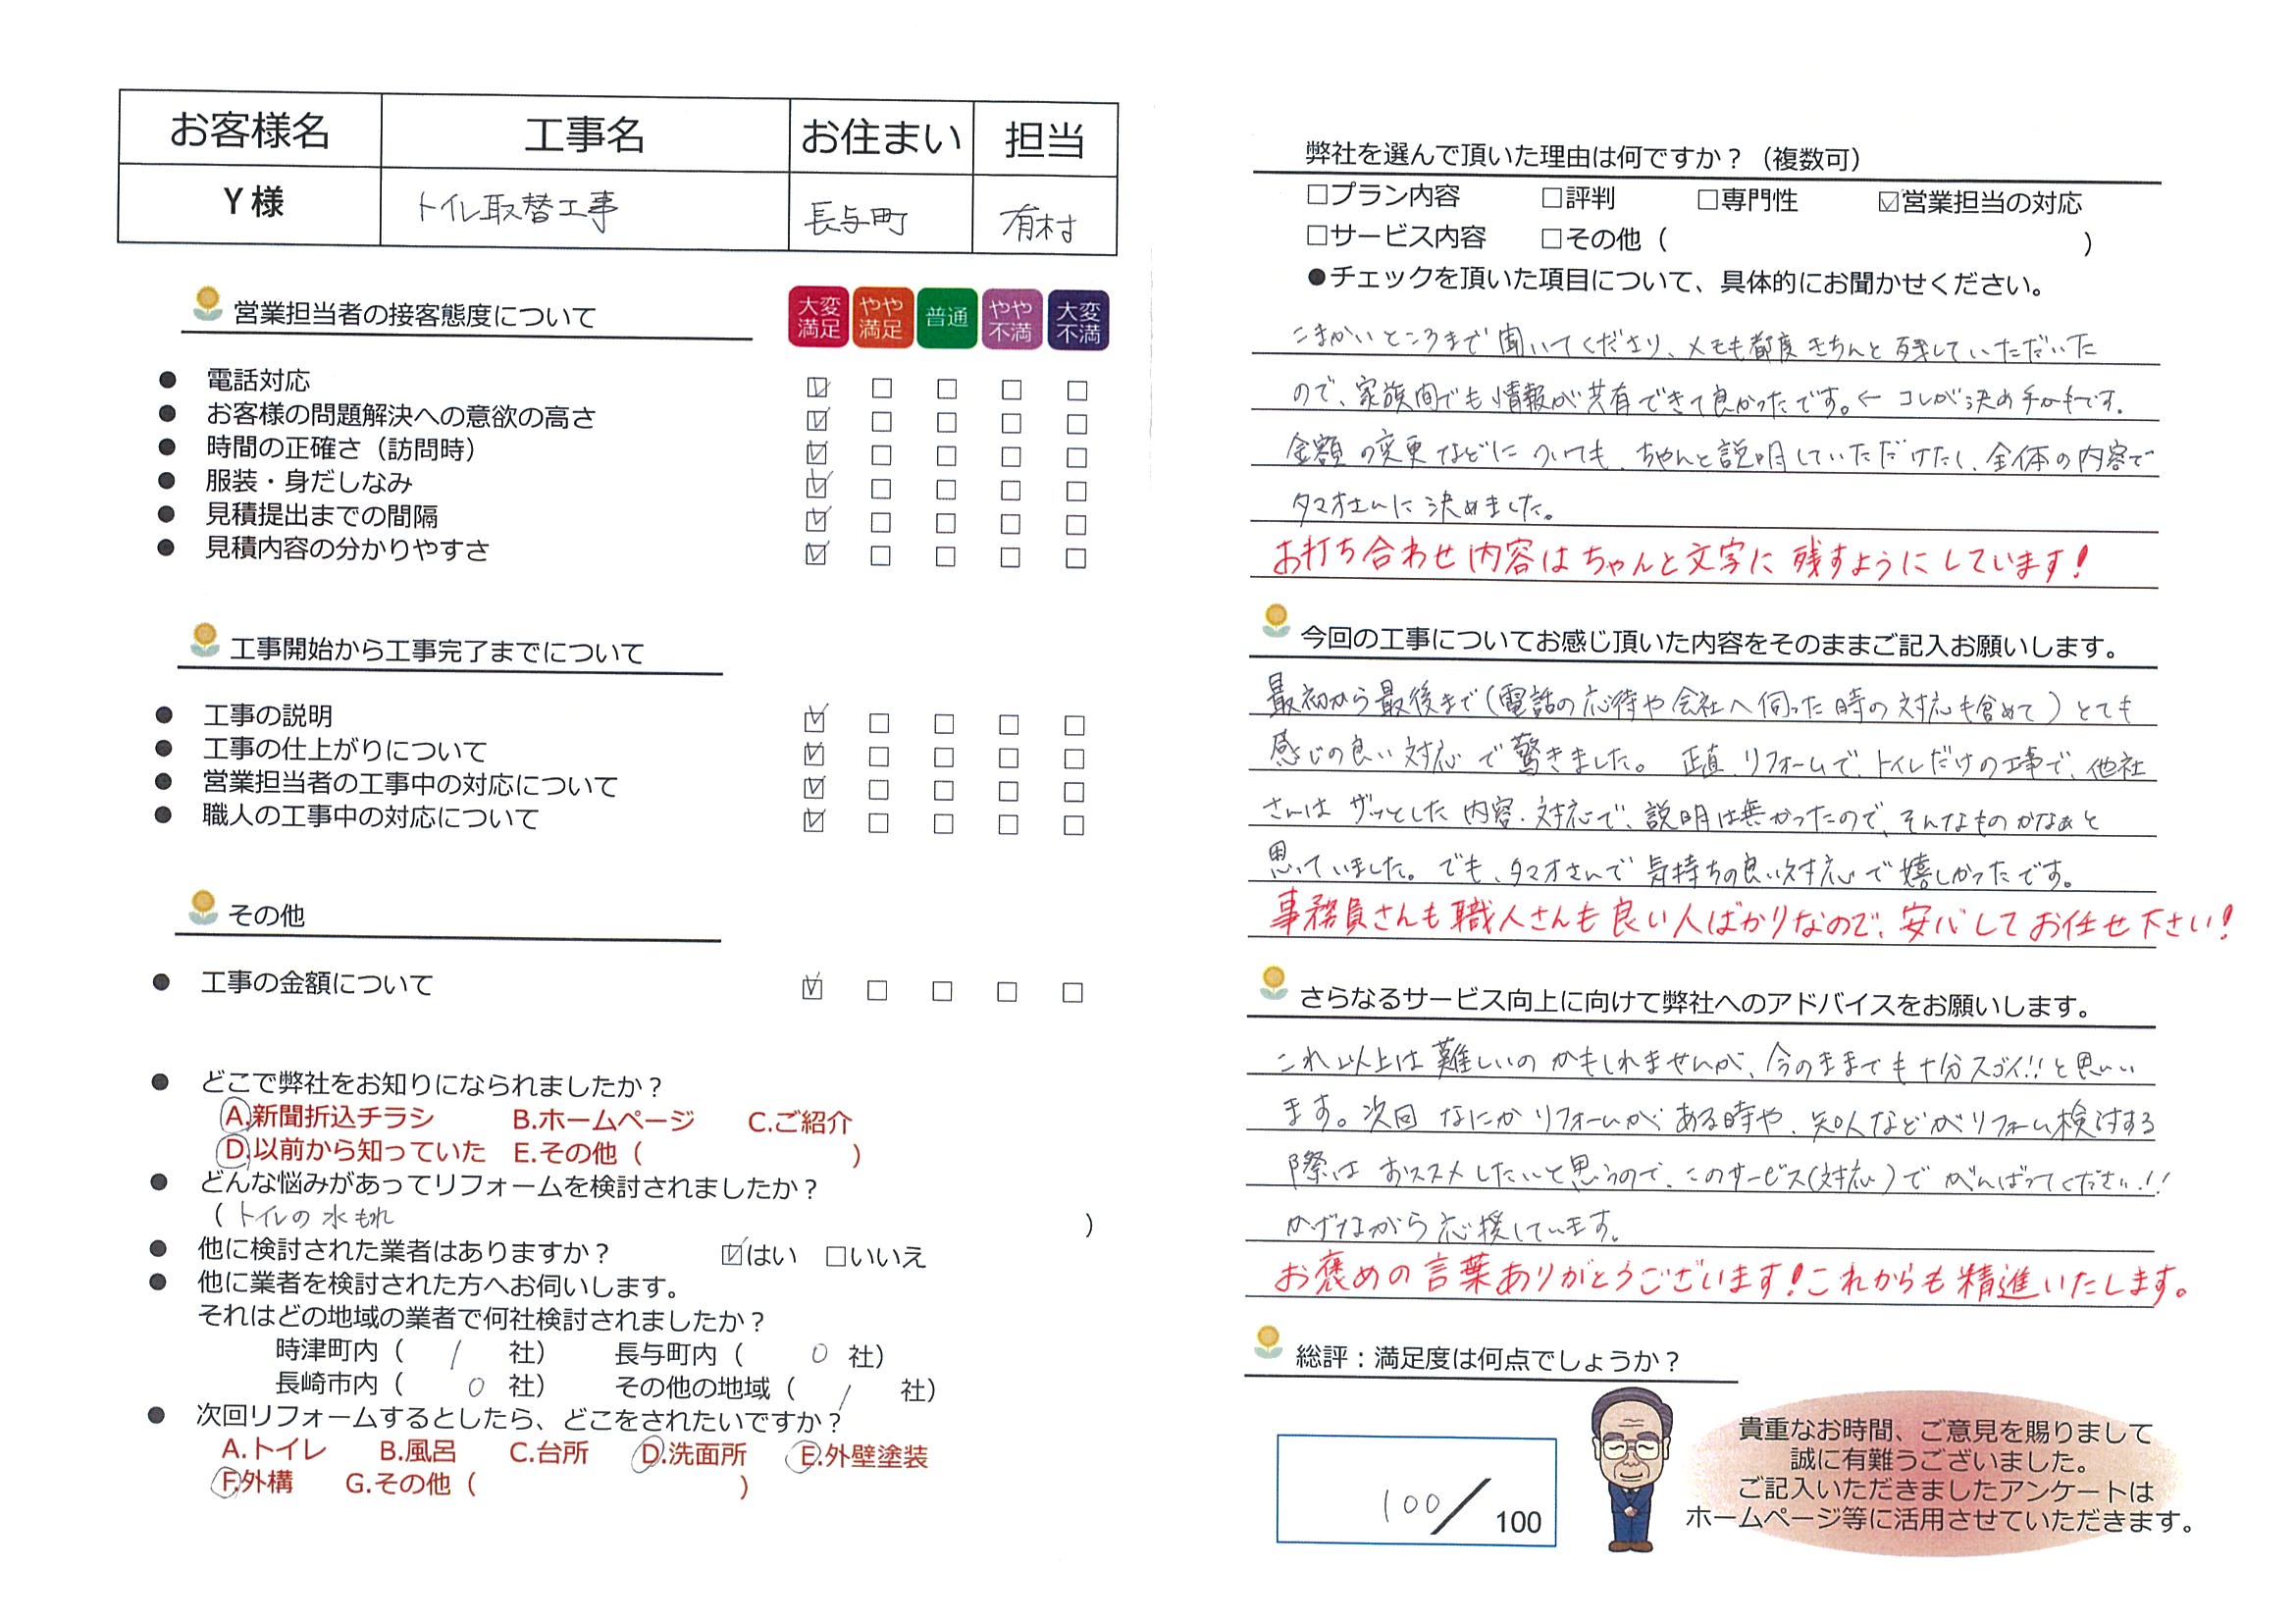 お客様名 工事名 お住まい 担当
Y様 トイレ取替工事 長与町 有村
営業担当者の接客態度について
大変満足 やや満足 普通 やや不満 大変不満
● 電話対応 ☑ □ □ □ □
● お客様の問題解決への意欲の高さ ☑ □ □ □ □
● 時間の正確さ（訪問時） ☑ □ □ □ □
● 服装・身だしなみ ☑ □ □ □ □
● 見積提出までの間隔 ☑ □ □ □ □
● 見積内容の分かりやすさ ☑ □ □ □ □
工事開始から工事完了までについて
● 工事の説明 ☑ □ □ □ □
● 工事の仕上がりについて ☑ □ □ □ □
● 営業担当者の工事中の対応について ☑ □ □ □ □
● 職人の工事中の対応について ☑ □ □ □ □
その他
● 工事の金額について ☑ □ □ □ □
● どこで弊社をお知りになられましたか？
A.新聞折込チラシ B.ホームページ C.ご紹介
D.以前から知っていた E.その他（ ）
● どんな悩みがあってリフォームを検討されましたか？
（トイレの水もれ ）
● 他に検討された業者はありますか？ ☑はい □いいえ
● 他に業者を検討された方へお伺いします。
それはどの地域の業者で何社検討されましたか？
時津町内（ 1 社） 長与町内（ 0 社）
長崎市内（ 0 社） その他の地域（ 1 社）
● 次回リフォームするとしたら、どこをされたいですか？
A.トイレ B.風呂 C.台所 D.洗面所 E.外壁塗装
F.外構 G.その他（ ）
弊社を選んで頂いた理由は何ですか？（複数可）
□プラン内容 □評判 □専門性 ☑営業担当の対応
□サービス内容 □その他（ ）
●チェックを頂いた項目について、具体的にお聞かせください。
こまかいところまで聞いてくださり、メモも都度きちんと残していただいた
ので、家族間でも情報が共有できて良かったです。← コレが決め手かもです。
金額の変更などについても、ちゃんと説明していただけたし、全体の内容で
タマオさんに決めました。
お打ち合わせ内容はちゃんと文字に残すようにしています！
今回の工事についてお感じ頂いた内容をそのままご記入お願いします。
最初から最後まで（電話の応待や会社へ伺った時の対応も含めて）とても
感じの良い対応で驚きました。正直、リフォームで、トイレだけの工事で、他社
さんはザッとした内容・対応で、説明は無かったので、そんなものかなぁと
思っていました。でも、タマオさんで気持ちの良い対応で嬉しかったです。
事務員さんも職人さんも良い人ばかりなので、安心してお任せ下さい！
さらなるサービス向上に向けて弊社へのアドバイスをお願いします。
これ以上は難しいのかもしれませんが、今のままでも十分スゴイ!!と思い
ます。次回なにかリフォームがある時や、知人などがリフォーム検討する
際はおススメしたいと思うので、このサービス(対応)でがんばってください!!
かげながら応援しています。
お褒めの言葉ありがとうございます！これからも精進いたします。
総評：満足度は何点でしょうか？
100／100
貴重なお時間、ご意見を賜りまして
誠に有難うございました。
ご記入いただきましたアンケートは
ホームページ等に活用させていただきます。